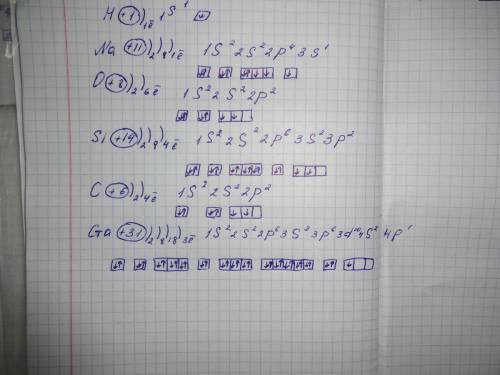 H (+1) ) 1ē 1S¹ ↓
Na (+11) ) ) ) 2 8 1ē 1S² 2S² 2p⁴ 3S¹
O (+8) ) ) 2 6ē 1S² 2S² 2p²
Si (+14) ) ) ) 2 8 4ē 1S² 2S² 2p⁶ 3S² 3p²
C (+6) ) ) 2 4ē 1S² 2S² 2p²
Ga (+31) ) ) ) ) 2 8 18 3ē 1S² 2S² 2p⁶ 3S² 3p⁶ 3d¹⁰ 4S² 4p¹